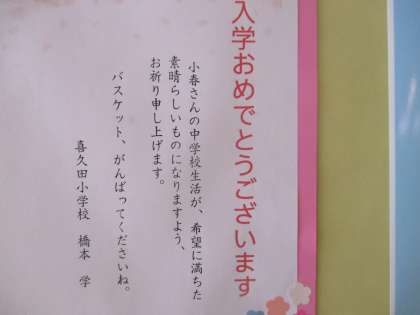 入学おめでとうございます
小春さんの中学校生活が、希望に満ちた
素晴らしいものになりますよう、
お祈り申し上げます。
バスケット、がんばってくださいね。
喜久田小学校 橋本 学